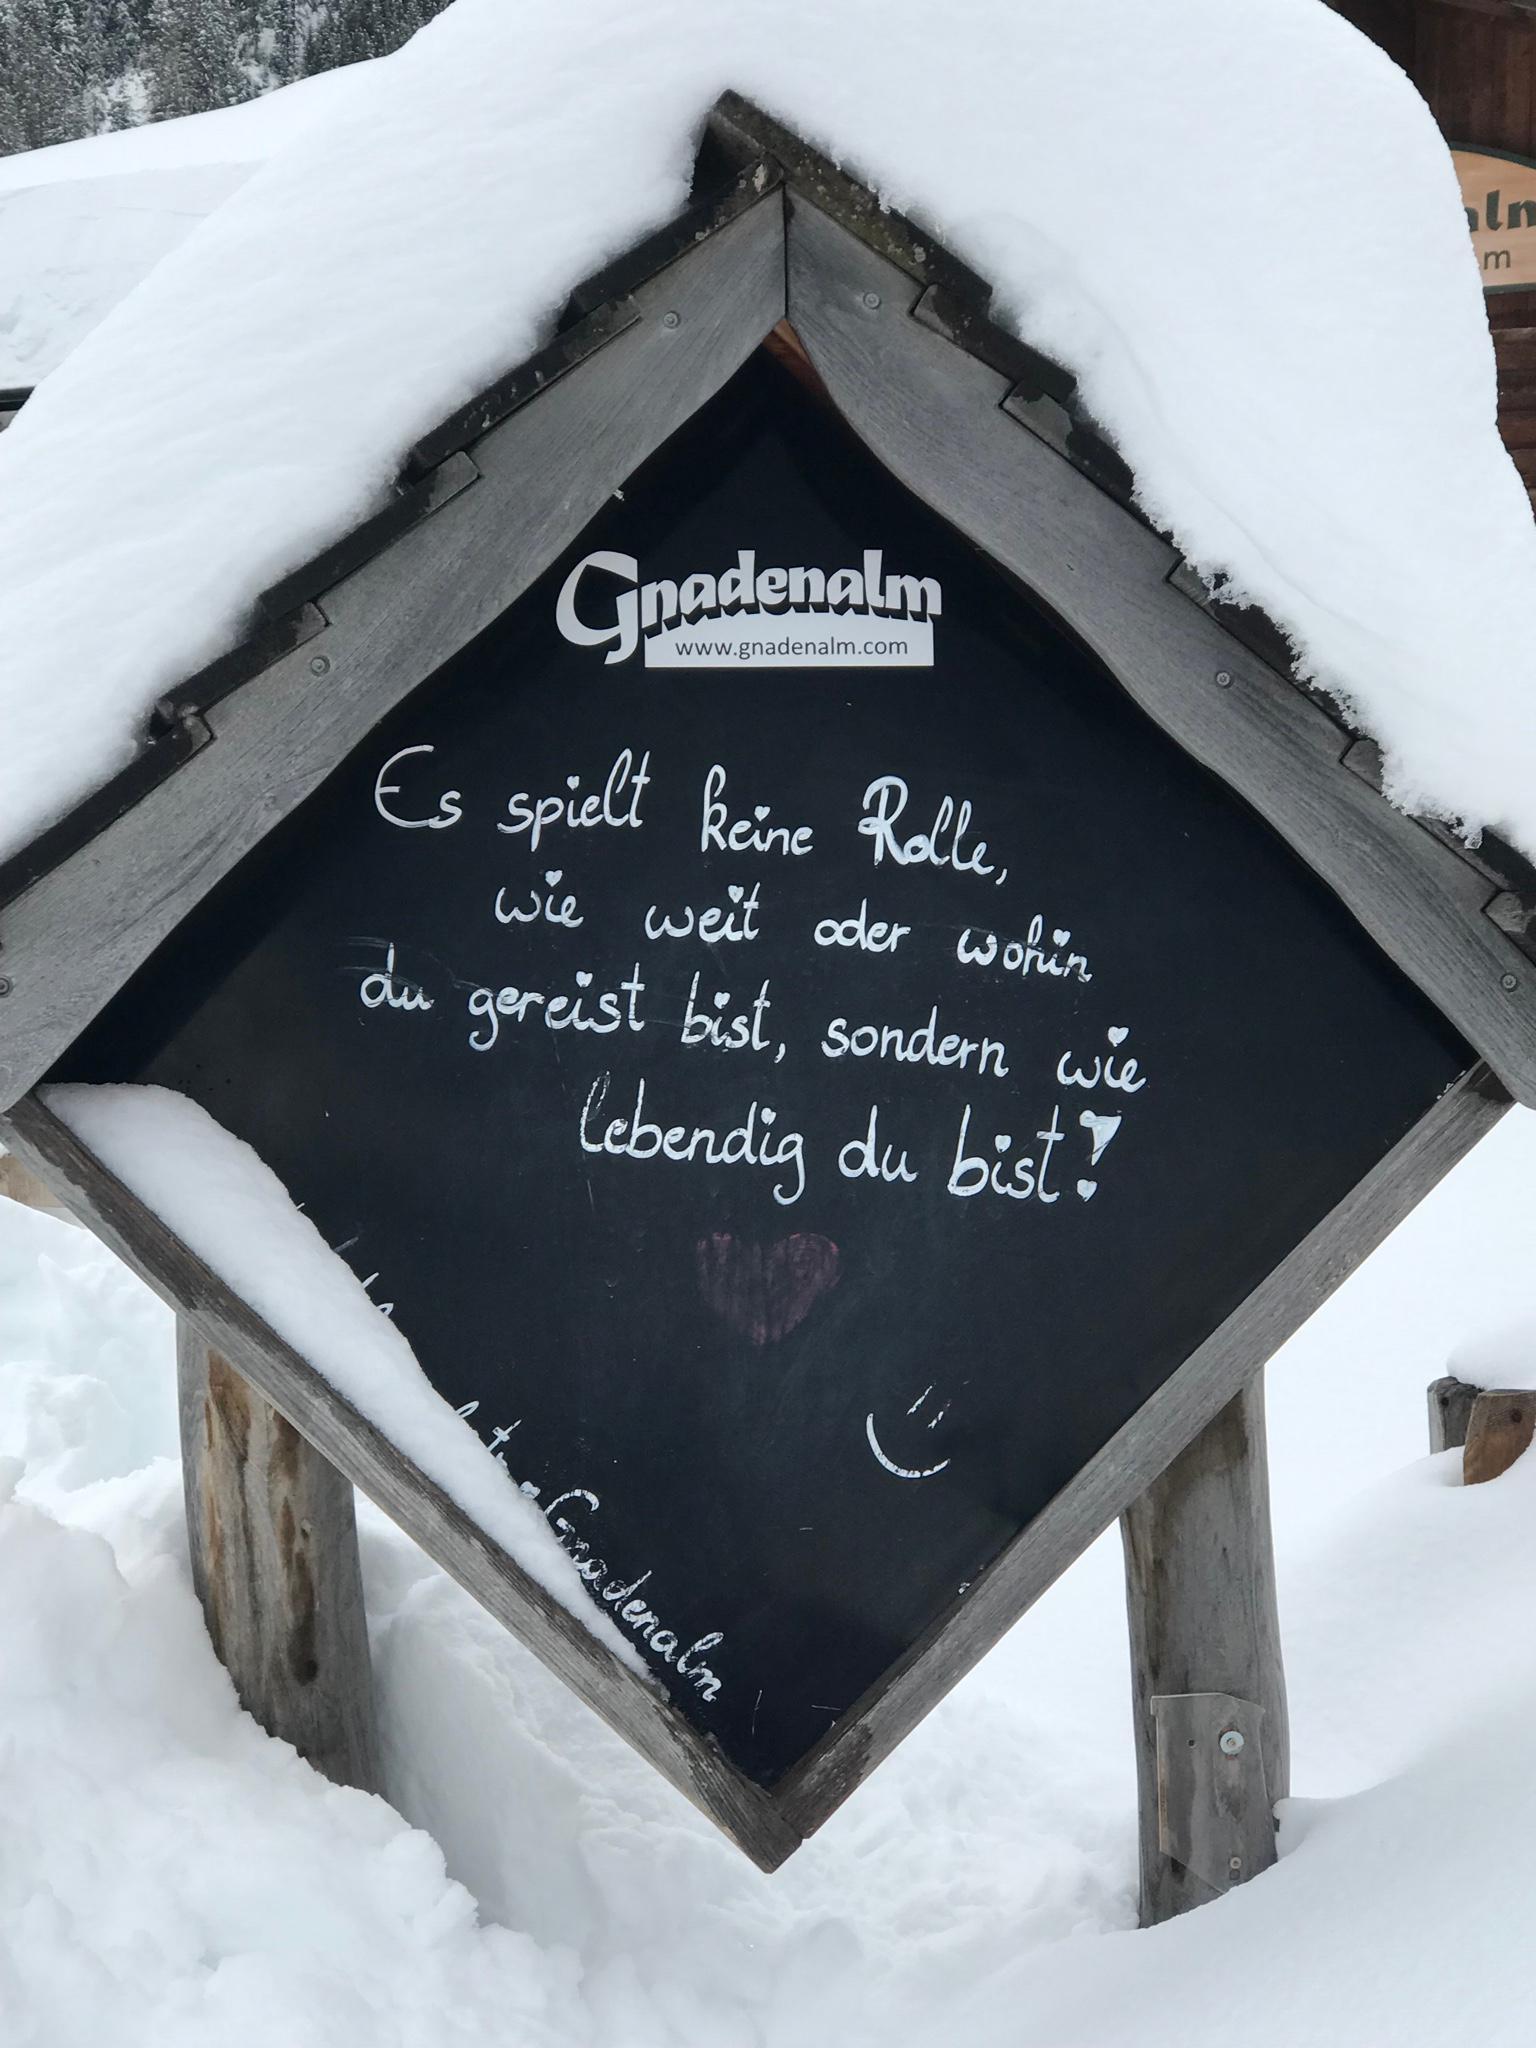 Gnadenalm
www.gnadenalm.com
Es spielt keine Rolle,
wie weit oder wohin
du gereist bist, sondern wie
lebendig du bist!
Gnadenalm